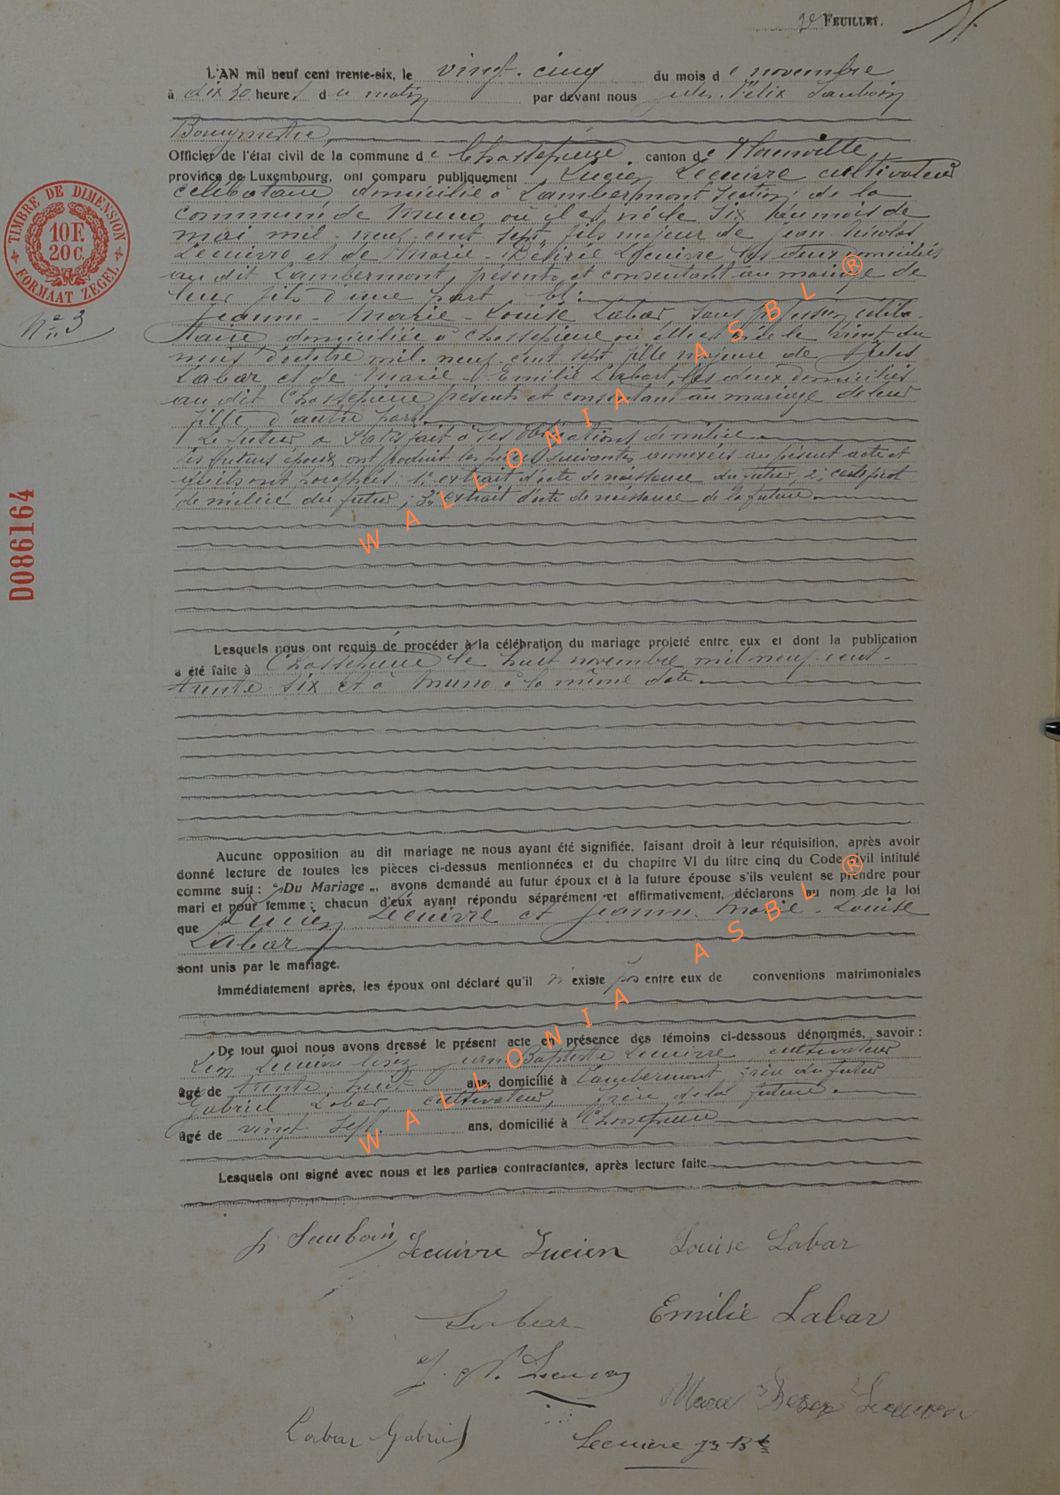 2e FEUILLET.
L'AN mil neuf cent trente-six, le vingt-cinq du mois de novembre
à dix 30 heures du matin par devant nous Jules Félix Sauboin
Bourgmestre
Officier de l'état civil de la commune de Chassepierre canton de Florenville
province de Luxembourg, ont comparu publiquement Lucien Lecuivre cultivateur
célibataire domicilié à Lambermont section de la
commune de Muno où il est né le six du mois de
mai mil neuf cent sept, fils majeur de Jean Nicolas
Lecuivre et de Marie-Désirée Lecuivre les deux domiciliés
au dit Lambermont, présents et consentant au mariage de
leur fils d'une part Et:
Jeanne-Marie-Louise Labar sans profession céliba-
taire, domiciliée à Chassepierre où elle est née le vingt du
mois d'octobre mil-neuf cent sept fille majeure de Jules
Labar et de Marie Emilie Labar, les deux domiciliés
au dit Chassepierre présents et consentant au mariage de leur
fille d'autre part
Le futur a satisfait à ses obligations de milice
Les futurs époux ont produit les pièces suivantes annexées au présent acte et
qu'ils ont paraphés: 1° extrait d'acte de naissance du futur, 2°
de milice du futur; 3° extrait d'acte de naissance de la future
Lesquels nous ont requis de procéder à la célébration du mariage projeté entre eux et dont la publication
a été faite à Chassepierre le huit novembre mil neuf cent-
trente six et à Muno à la même date
Aucune opposition au dit mariage ne nous ayant été signifiée, faisant droit à leur réquisition, après avoir
donné lecture de toutes les pièces ci-dessus mentionnées et du chapitre VI du titre cinq du Code civil intitulé
comme suit : "Du Mariage", avons demandé au futur époux et à la future épouse s'ils veulent se prendre pour
mari et pour femme ; chacun d'eux ayant répondu séparément et affirmativement, déclarons au nom de la loi
que Lucien Lecuivre et Jeanne-Marie-Louise
Labar
sont unis par le mariage.
Immédiatement après, les époux ont déclaré qu'il n'existe pas entre eux de conventions matrimoniales
De tout quoi nous avons dressé le présent acte en présence des témoins ci-dessous dénommés, savoir :
Jean Baptiste Lecuivre, cultivateur
âgé de trente huit ans, domicilié à Lambermont frère du futur
Gabriel Labar, cultivateur, frère de la future
âgé de vingt sept ans, domicilié à Chassepierre
Lesquels ont signé avec nous et les parties contractantes, après lecture faite
J. Sauboin Lecuivre Lucien Louise Labar
Labar Emilie Labar
J. N. Lecuivre
Marie Lecuivre
Labar Gabriel Lecuivre Jn Bte
TIMBRE DE DIMENSION
10 F.
20 C.
FORMAAT ZEGEL
N° 3
D086164
WALLONIA ASBL ®
WALLONIA ASBL ®